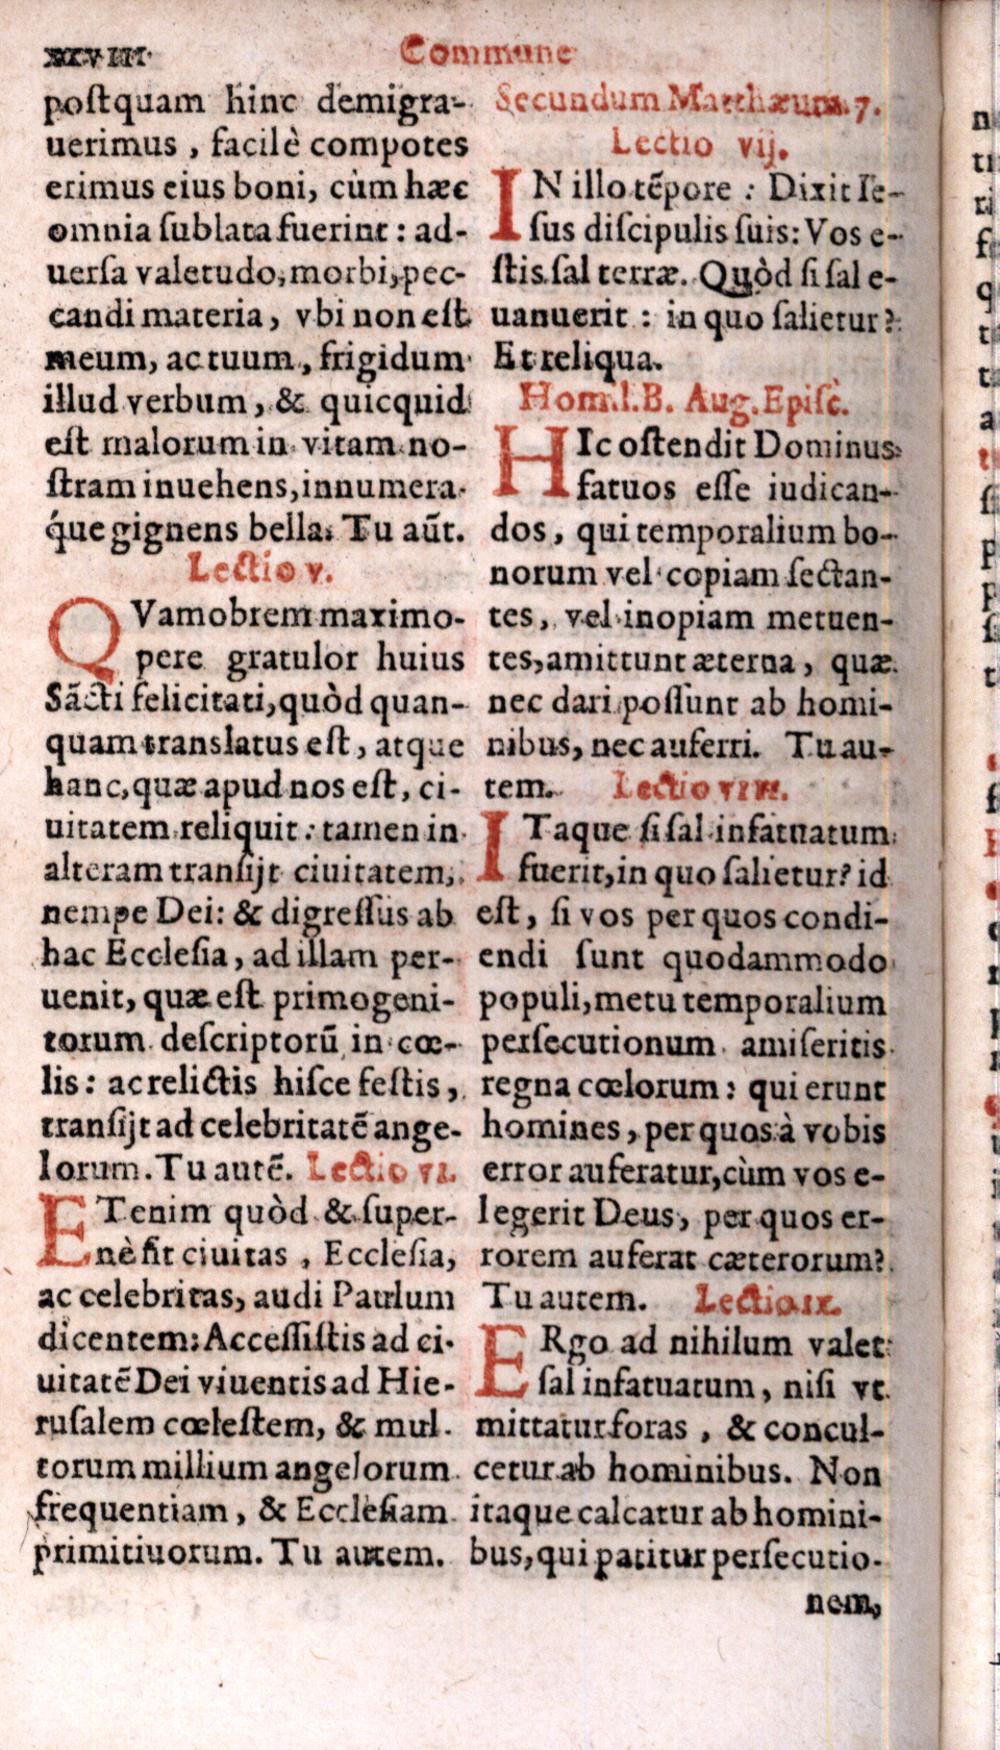 XLVIII.
Commune
poſtquam hinc demigra-
uerimus, facilè compotes
erimus eius boni, cùm hæc
omnia ſublata fuerint: ad-
uerſa valetudo, morbi, pec-
candi materia, vbi non eſt
meum, ac tuum, frigidum
illud verbum, & quicquid
eſt malorum in vitam no-
ſtram inuehens, innumera-
q́ue gignens bella. Tu aũt.
Lectio v.
QVamobrem maximo-
pere gratulor huius
Sãcti felicitati, quòd quan-
quam translatus eſt, atque
hanc, quæ apud nos eſt, ci-
uitatem reliquit: tamen in
alteram tranſijt ciuitatem,
nempe Dei: & digreſſus ab
hac Eccleſia, ad illam per-
uenit, quæ eſt primogeni-
torum deſcriptorũ in cœ-
lis: ac relictis hiſce feſtis,
tranſijt ad celebritatẽ ange-
lorum. Tu autẽ. Lectio vi.
ETenim quòd & ſuper-
nè ſit ciuitas, Eccleſia,
ac celebritas, audi Paulum
dicentem: Acceſſiſtis ad ci-
uitatẽ Dei viuentis ad Hie-
ruſalem cœleſtem, & mul-
torum millium angelorum
frequentiam, & Eccleſiam
primitiuorum. Tu autem.
Secundum Matthæum. 7.
Lectio vij.
IN illo tẽpore: Dixit Ie-
ſus diſcipulis ſuis: Vos e-
ſtis ſal terræ. Quòd ſi ſal e-
uanuerit: in quo ſalietur?
Et reliqua.
Homil. B. Aug. Epiſc.
HIc oſtendit Dominus
fatuos eſſe iudican-
dos, qui temporalium bo-
norum vel copiam ſectan-
tes, vel inopiam metuen-
tes, amittunt æterna, quæ
nec dari poſſunt ab homi-
nibus, nec auferri. Tu au-
tem. Lectio viii.
ITaque ſi ſal infatuatum
fuerit, in quo ſalietur? id
eſt, ſi vos per quos condi-
endi ſunt quodammodo
populi, metu temporalium
perſecutionum amiſeritis
regna cœlorum: qui erunt
homines, per quos à vobis
error auferatur, cùm vos e-
legerit Deus, per quos er-
rorem auferat cæterorum?
Tu autem. Lectio ix.
ERgo ad nihilum valet
ſal infatuatum, niſi vt
mittatur foras, & concul-
cetur ab hominibus. Non
itaque calcatur ab homini-
bus, qui patitur perſecutio-
nem,